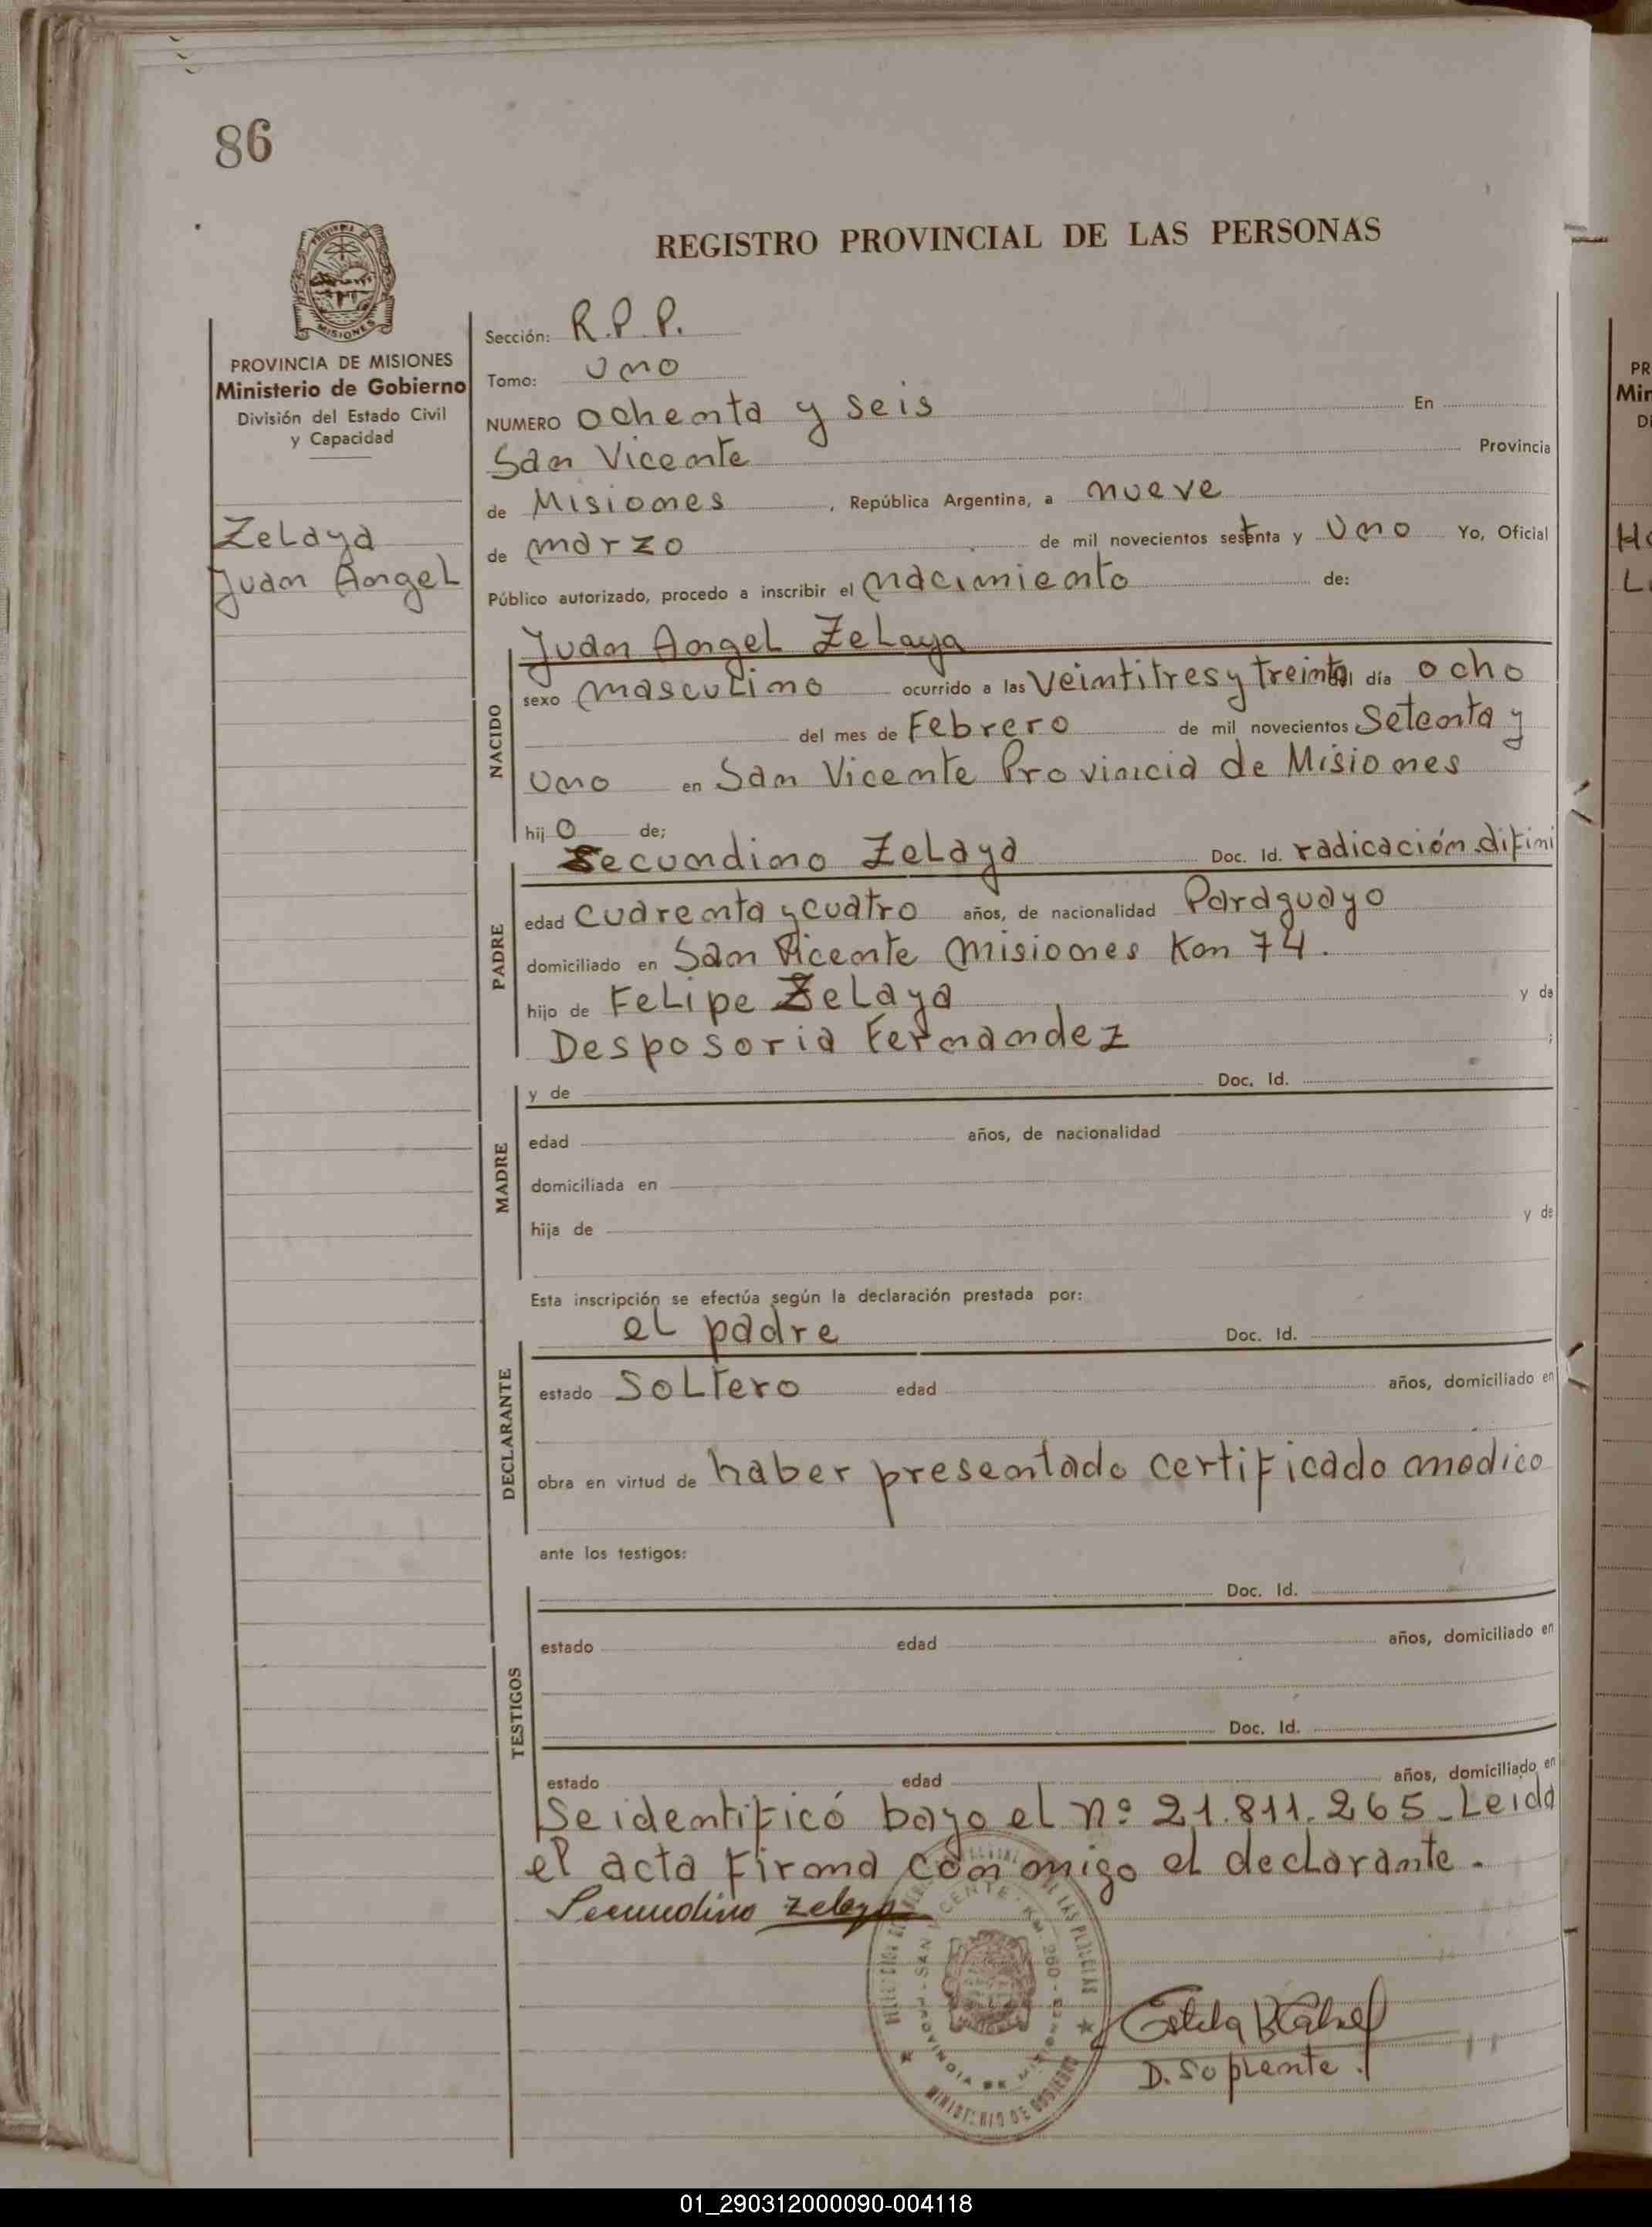 86
REGISTRO PROVINCIAL DE LAS PERSONAS
MISIONES
PROVINCIA DE MISIONES
Ministerio de Gobierno
División del Estado Civil
y Capacidad
Zelaya
Juan Angel
Sección: R.P.P.
Tomo: Uno
NUMERO Ochenta y seis En
San Vicente Provincia
de Misiones, República Argentina, a nueve
de marzo de mil novecientos setenta y Uno Yo, Oficial
Público autorizado, procedo a inscribir el nacimiento de:
NACIDO
Juan Angel Zelaya
sexo masculino ocurrido a las Veintitres y treinta del día ocho
del mes de Febrero de mil novecientos Setenta y
Uno en San Vicente Provincia de Misiones
hijo de;
PADRE
Secundino Zelaya Doc. Id. radicación difini
edad cuarenta y cuatro años, de nacionalidad Paraguayo
domiciliado en San Vicente misiones Km 74.
hijo de Felipe Zelaya y de
Desposoria Fernandez ;
MADRE
y de Doc. Id.
edad años, de nacionalidad
domiciliada en
hija de y de
Esta inscripción se efectúa según la declaración prestada por:
DECLARANTE
el padre Doc. Id.
estado Soltero edad años, domiciliado en
obra en virtud de haber presentado certificado medico
ante los testigos:
TESTIGOS
Doc. Id.
estado edad años, domiciliado en
Doc. Id.
estado edad años, domiciliado en
Se identificó bajo el nº 21.811.265_Leida
el acta firma con migo el declarante.
Secundino Zelaya
SAN VICENTE - KM. 260 -
PROVINCIA DE MISIONES
MINISTERIO DE GOBIERNO
Estela
D. Soplente.
01_290312000090-004118